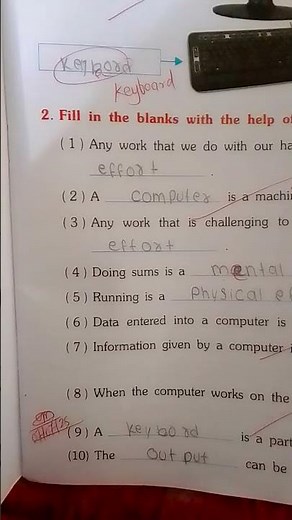 keyboard
keyboard
2. Fill in the blanks with the help of
(1) Any work that we do with our ha
effort
(2) A computer is a machi
(3) Any work that is challenging to
effort
(4) Doing sums is a mental
(5) Running is a Physical ef
(6) Data entered into a computer is
(7) Information given by a computer i
(8) When the computer works on the
(9) A keybord is a part
(10) The output can be